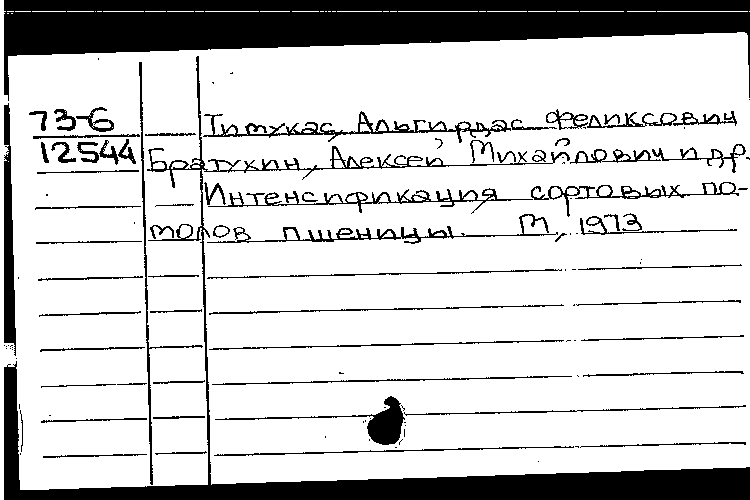 73-6 Тимукас, Альгирдас Феликсович
12544 Братухин, Алексей Михайлович и др.
Интенсификация сортовых по-
молов пшеницы. М, 1973